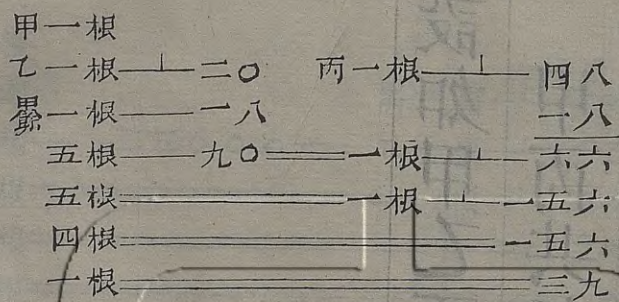 甲一根
乙一根—⊥—二〇　丙一根—⊥—四八
一根——一八　一八
五根——九〇＝＝一根—⊥—六六
五根＝＝一根—⊥—一五六
四根＝＝一五六
一根＝＝三九